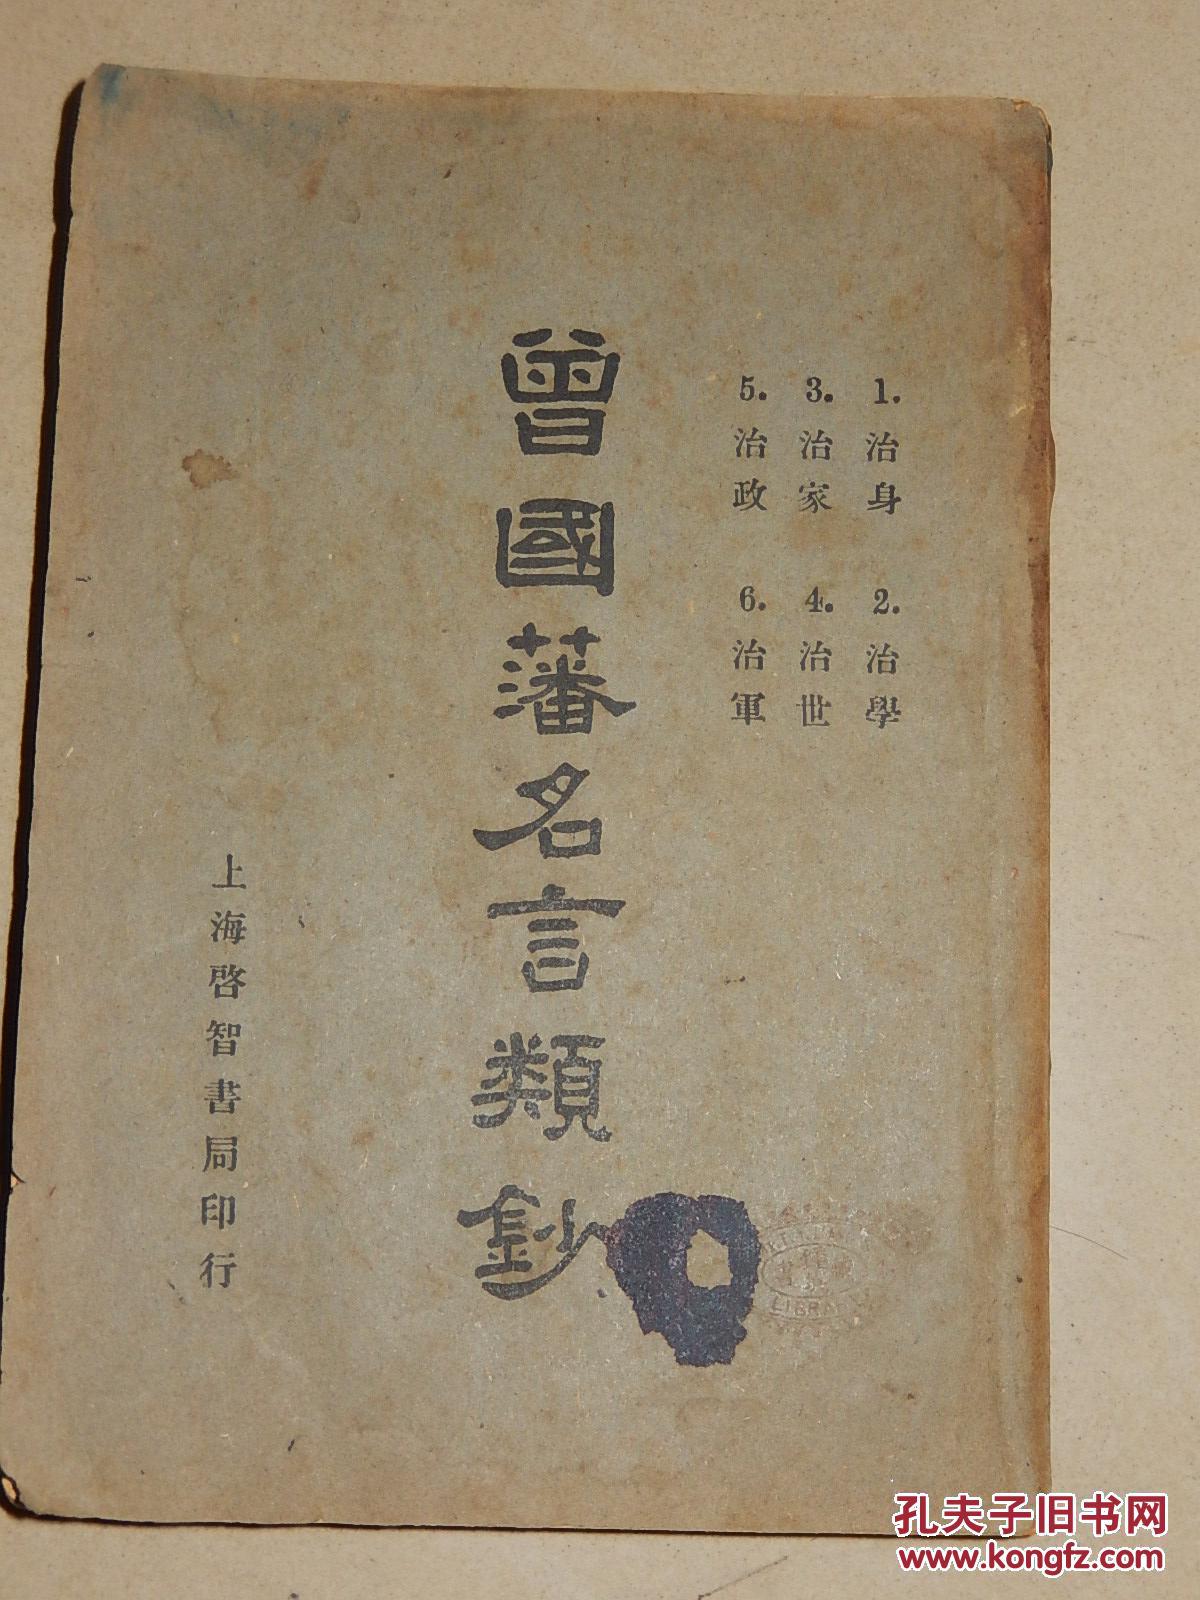 1.治身 2.治學
3.治家 4.治世
5.治政 6.治軍
曾國藩名言類鈔
上海啓智書局印行
LIBRA
孔夫子旧书网
www.kongfz.com